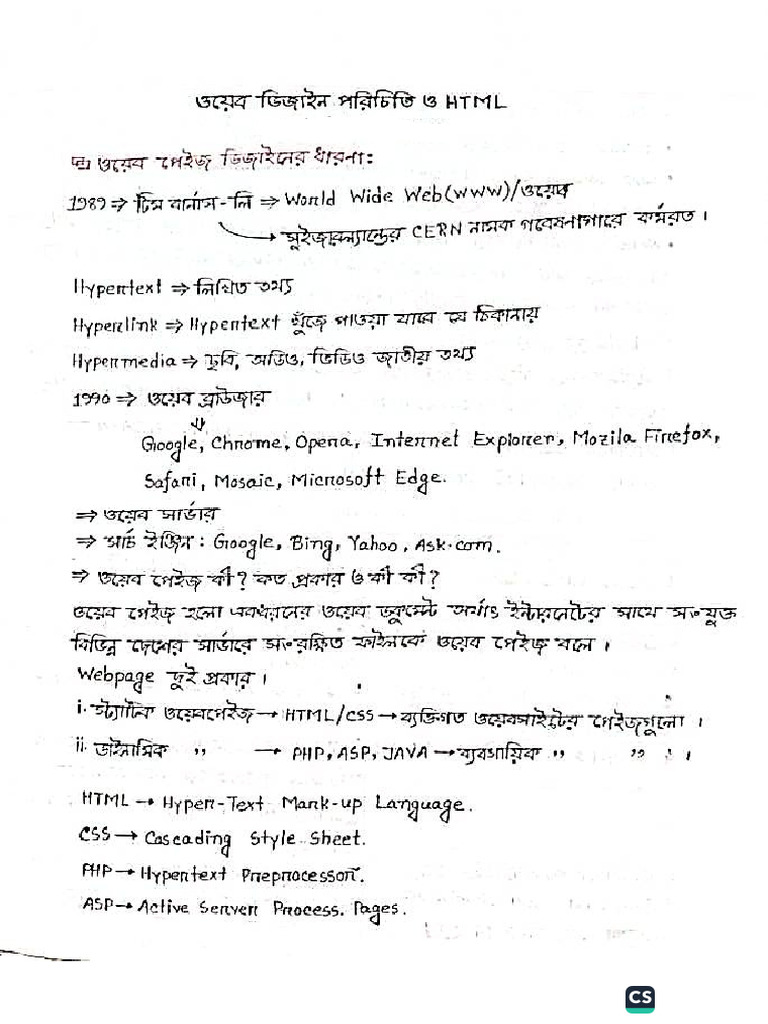 ওয়েব ডিজাইন পরিচিতি ও HTML
ওয়েব পেইজ ডিজাইনের ধারনা:
1989 ⇒ টিম বার্নাস-লি ⇒ World Wide Web(WWW)/ওয়েব
→ সুইজারল্যান্ডের CERN নামক গবেষনাগারে কর্মরত ।
Hypertext ⇒ লিখিত তথ্য
Hyperlink ⇒ Hypertext খুঁজে পাওয়া যাবে যে ঠিকানায়
Hypermedia ⇒ ছবি, অডিও, ভিডিও জাতীয় তথ্য
1990 ⇒ ওয়েব ব্রাউজার
⇓
Google, Chrome, Opera, Internet Explorer, Mozila Firefox,
Safari, Mosaic, Microsoft Edge.
⇒ ওয়েব সার্ভার
⇒ সার্চ ইঞ্জিন : Google, Bing, Yahoo, Ask.com.
⇒ ওয়েব পেইজ কী? কত প্রকার ও কী কী?
ওয়েব পেইজ হলো একধরনের ওয়েব ডকুমেন্ট অর্থাৎ ইন্টারনেটের সাথে সংযুক্ত
বিভিন্ন দেশের সার্ভারে সংরক্ষিত ফাইলকে ওয়েব পেইজ বলে ।
Webpage দুই প্রকার ।
i. স্ট্যাটিক ওয়েবপেইজ → HTML/CSS → ব্যক্তিগত ওয়েবসাইটের পেইজগুলো ।
ii. ডাইনামিক ,, → PHP, ASP, JAVA → ব্যবসায়িক ,, ,, ।
HTML → Hyper-Text Mark-up Language.
CSS → Cascading Style Sheet.
PHP → Hypertext Preprocessor.
ASP → Active Server Process. Pages.
CS